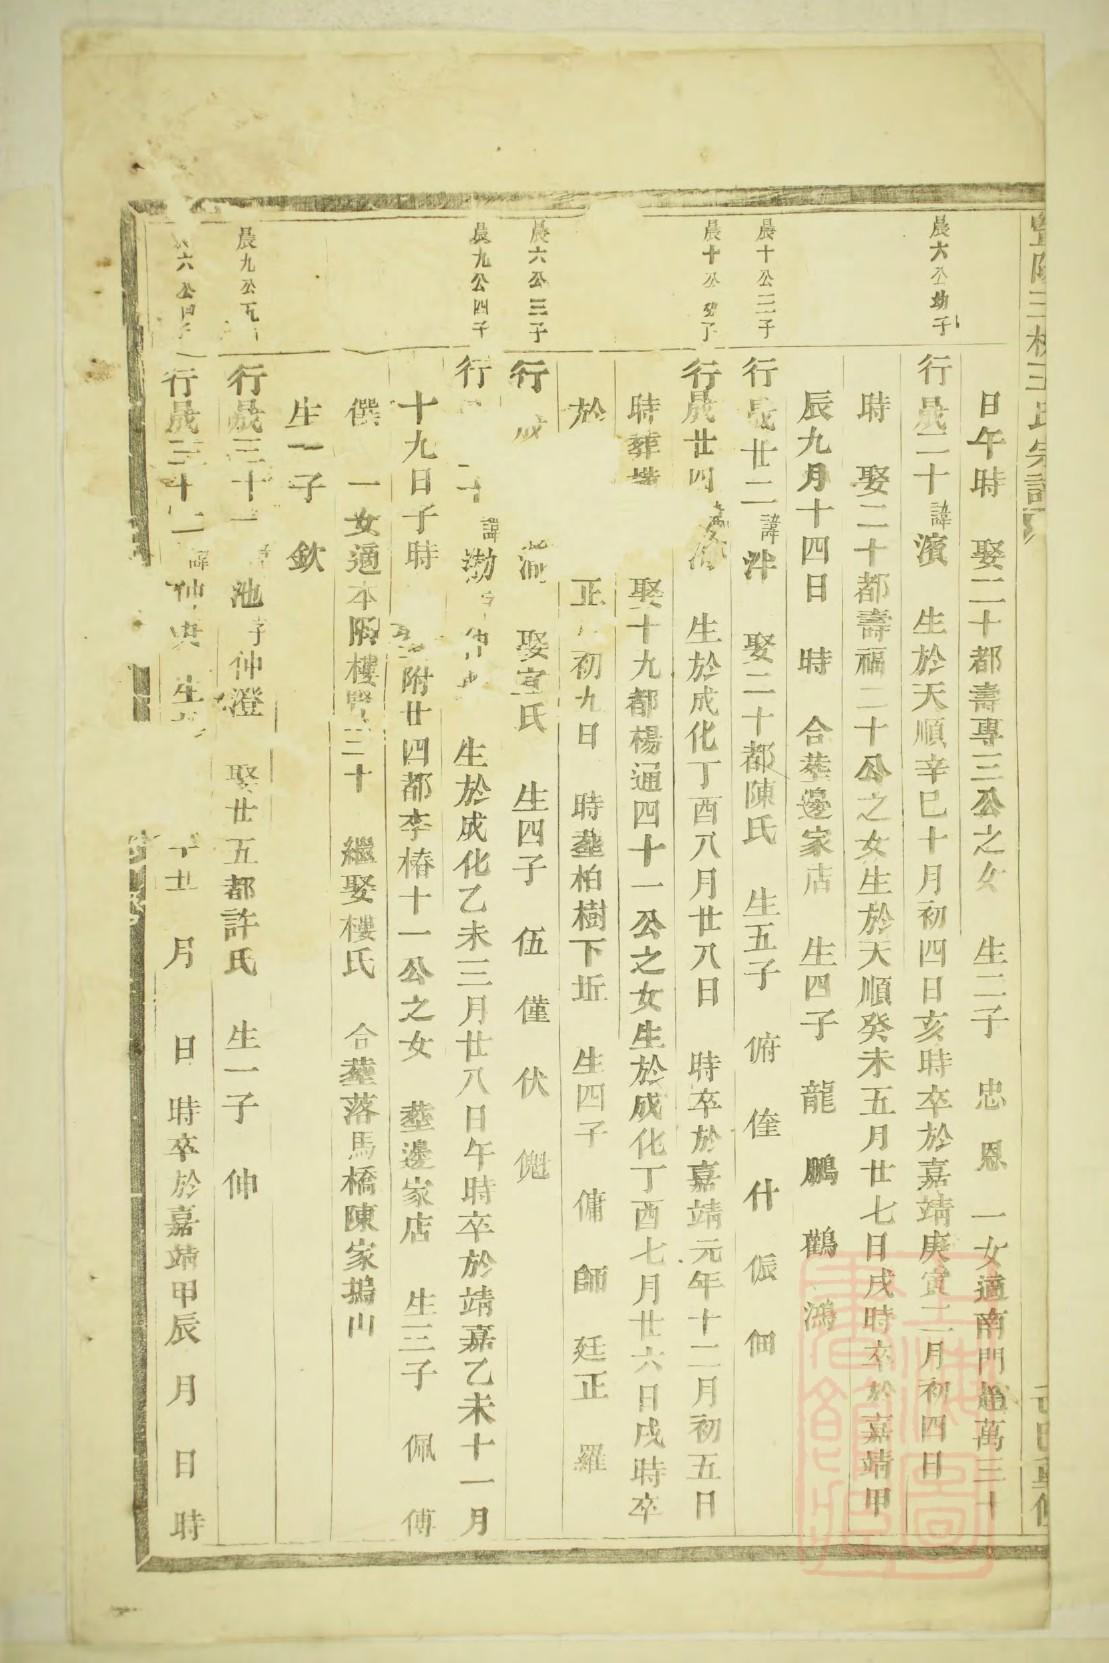 日午時 娶二十都壽專三公之女 生二子 忠 恩 一女適南門趙萬三十
晨六公幼子
行晟二十諱濱 生於天順辛巳十月初四日亥時卒於嘉靖庚寅二月初四日
時 娶二十都壽福二十公之女生於天順癸未五月廿七日戌時卒於嘉靖甲
辰九月十四日 時 合塟邊家店 生四子 龍 鵬 鶴 鴻
晨十公三子
行晟廿二諱泮 娶二十都陳氏 生五子 俯 倕 什 侲 佃
晨十公幼子
行晟廿四 生於成化丁酉八月廿八日 時卒於嘉靖元年十二月初五日
時葬 娶十九都楊通四十一公之女生於成化丁酉七月廿六日戌時卒
於 正 初九日 時塟柏樹下坵 生四子 傭 師 廷正 羅
晨六公三子
行晟 娶宣氏 生四子 伍 僅 伏 傀
晨九公四子
行 諱渤 生於成化乙未三月廿八日午時卒於靖嘉乙未十一月
十九日子時 附廿四都李椿十一公之女 塟邊家店 生三子 佩 傅
僎 一女適本隅樓 三十 繼娶樓氏 合塟落馬橋陳家塢山
生一子 欽
晨九公
行晟三十 池 仲澄 娶廿五都許氏 生一子 仲
六公四子
行晟三十二諱 生 月 日 時卒於嘉靖甲辰 月 日 時